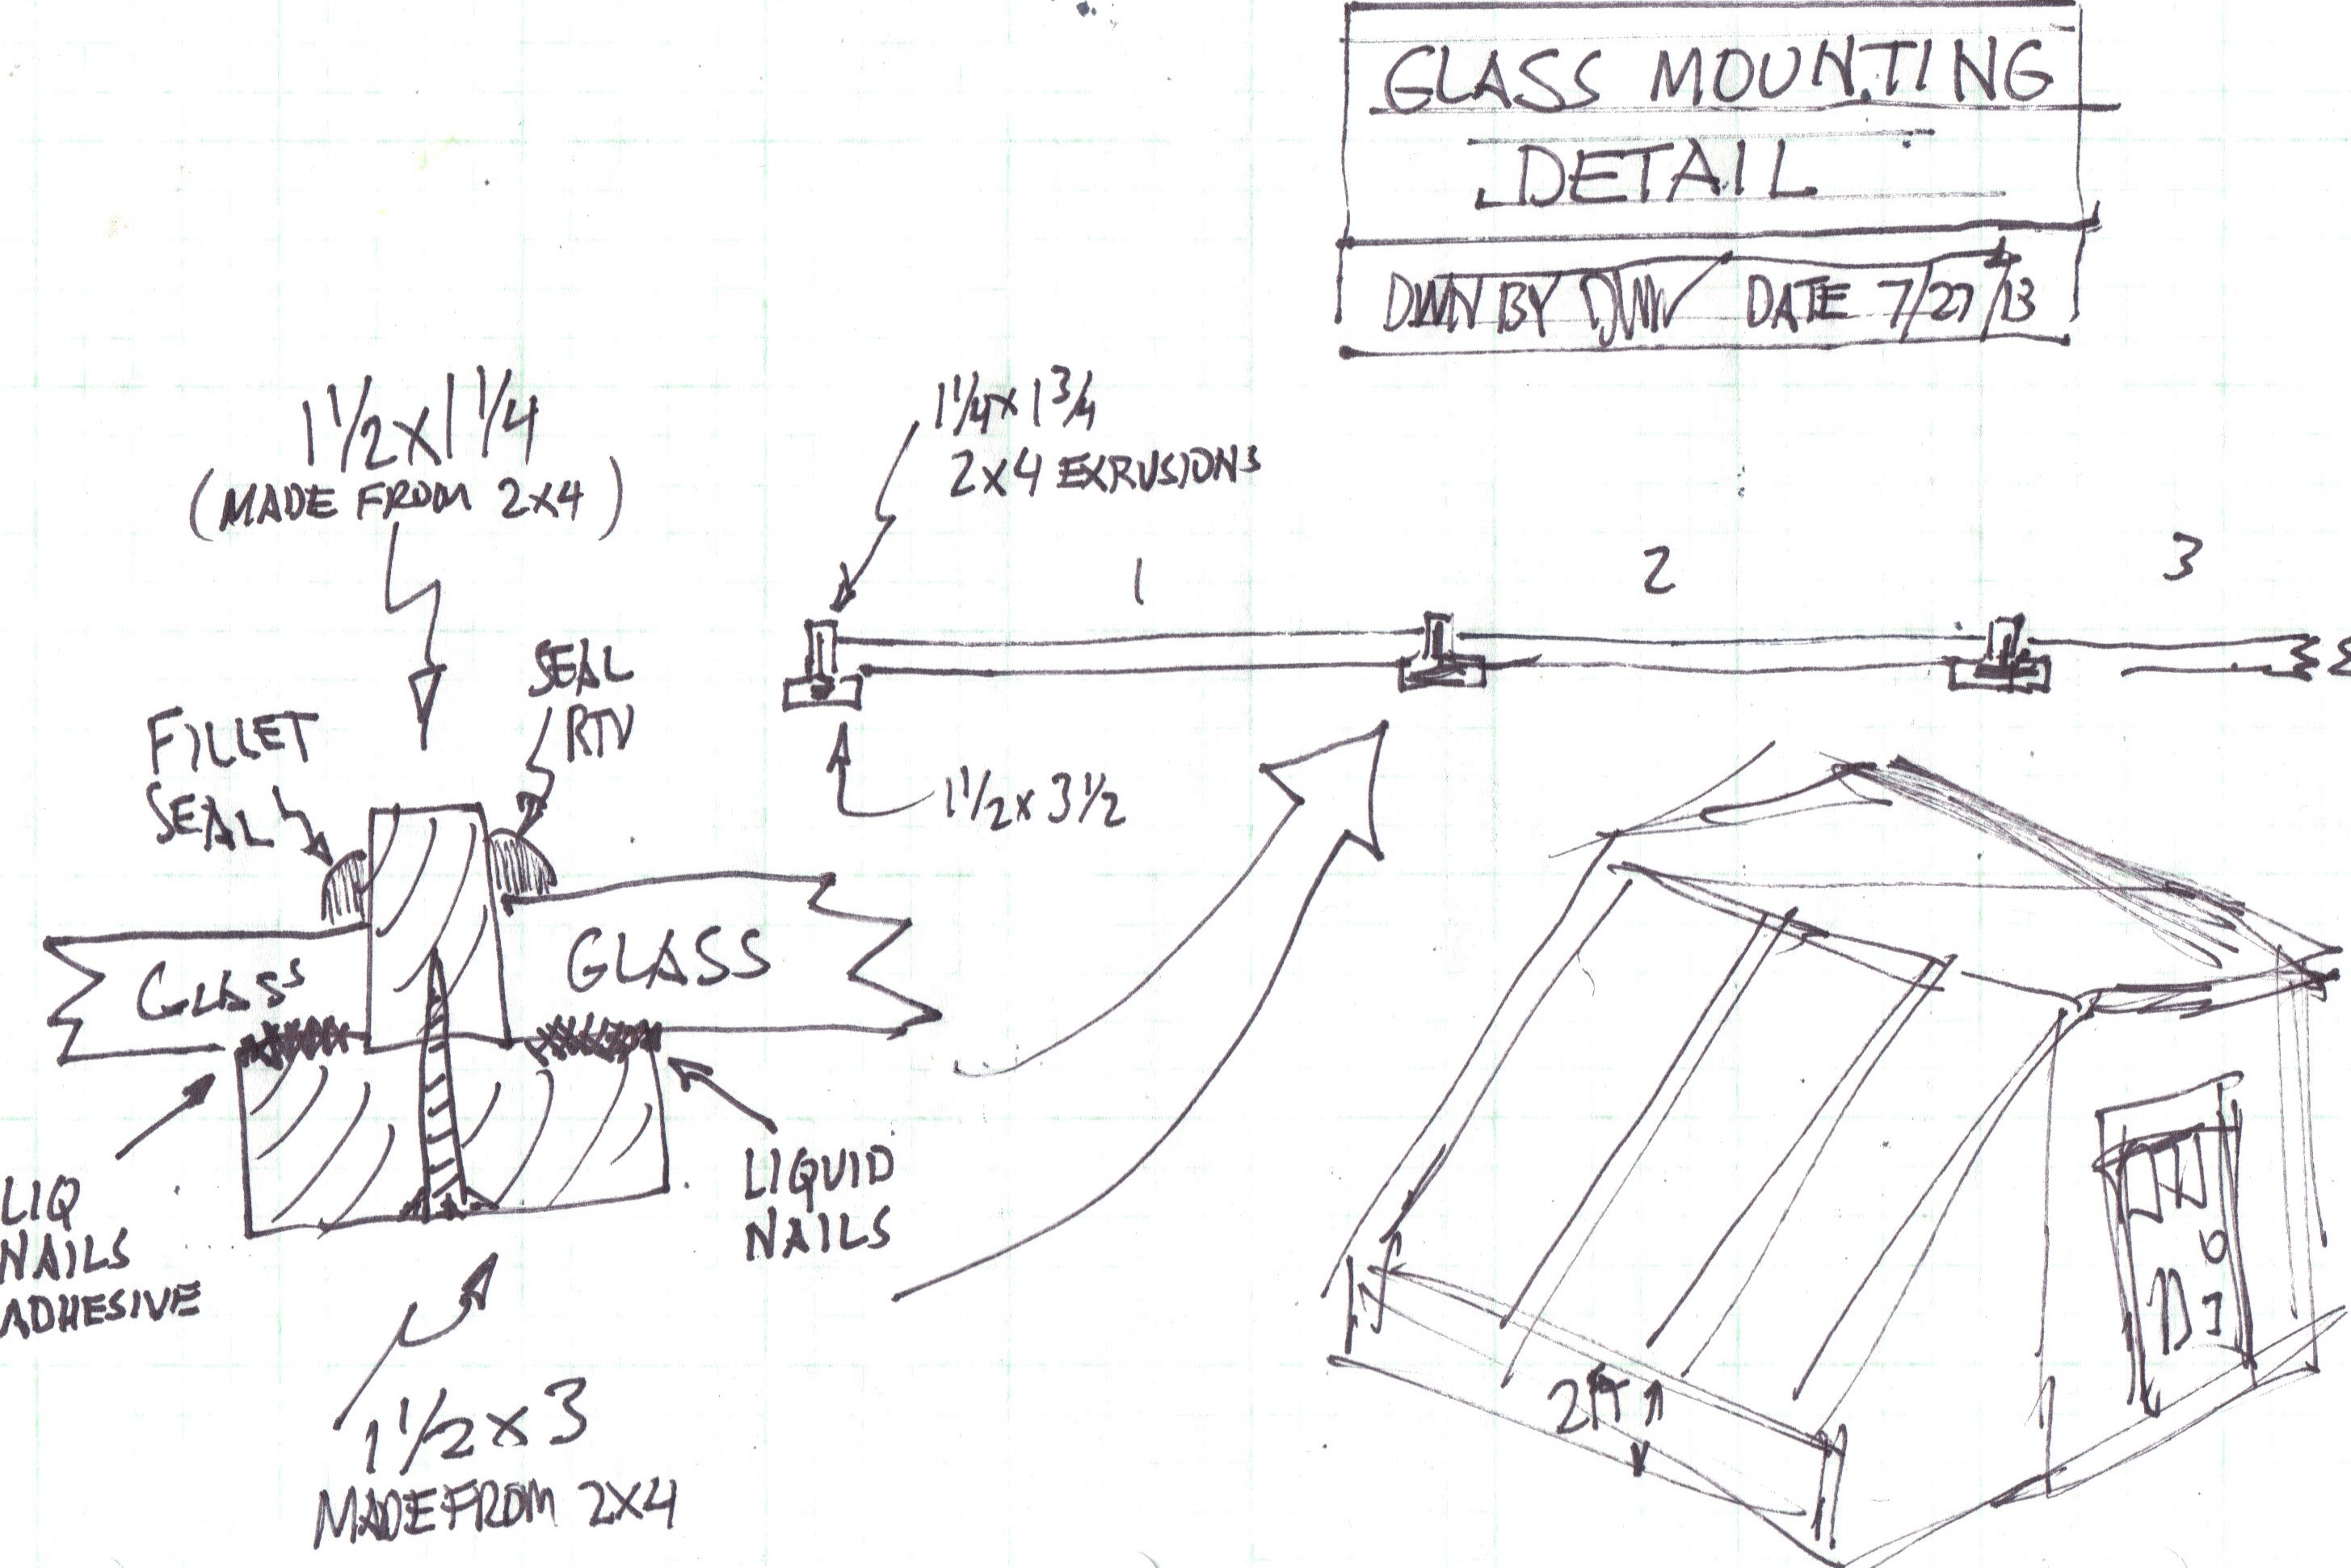 GLASS MOUNTING
DETAIL
DWN BY DWW DATE 7/27/13
1 1/2 x 1 1/4
(MADE FROM 2x4)
1 1/4 x 1 3/4
2x4 EXRUSIONS
1 2 3
SEAL
RTV
FILLET
SEAL
1 1/2 x 3 1/2
GLASS
GLASS
LIQ
NAILS
ADHESIVE
LIQUID
NAILS
1 1/2 x 3
MADE FROM 2x4
2 FT